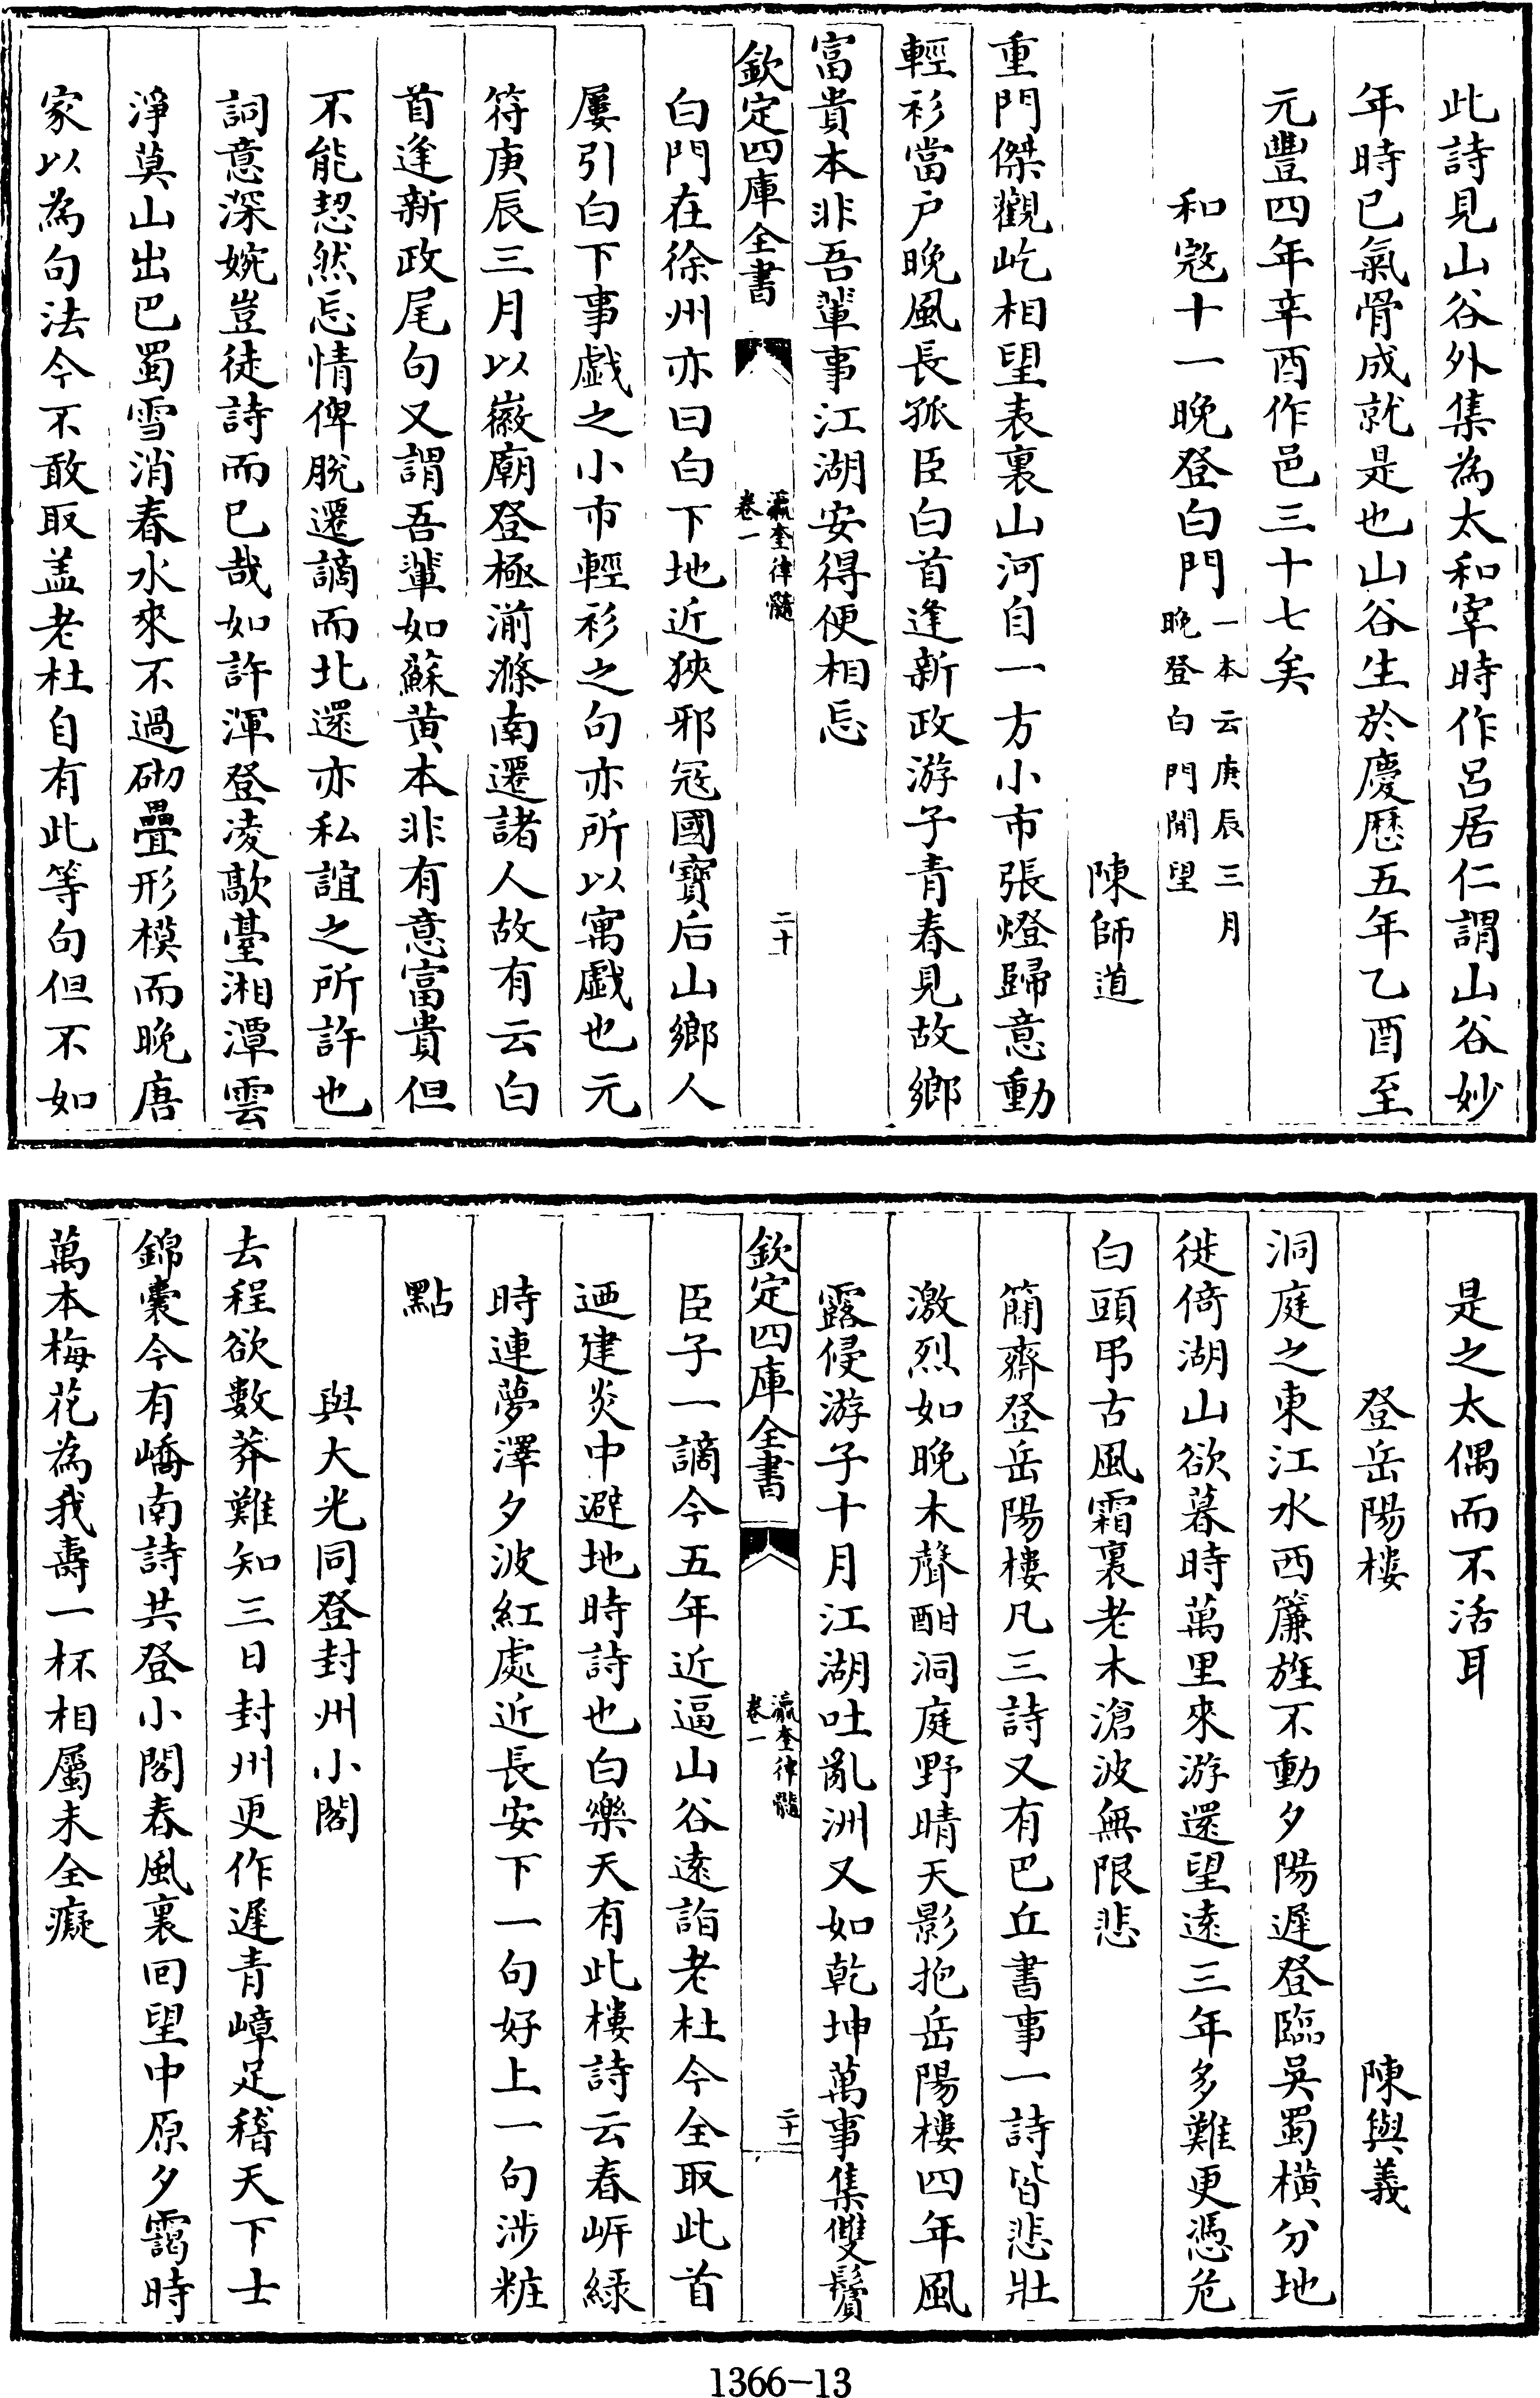 此詩見山谷外集為太和宰時作呂居仁謂山谷妙
年時已氣骨成就是也山谷生於慶厯五年乙酉至
元豐四年辛酉作邑三十七矣
和寇十一晚登白門一本云庚辰三月
晚登白門閒望
陳師道
重門傑觀屹相望表裏山河自一方小市張燈歸意動
輕衫當户晚風長孤臣白首逢新政游子青春見故鄉
富貴本非吾輩事江湖安得便相忘
欽定四庫全書
瀛奎律髓
卷一
二十
白門在徐州亦曰白下地近狹邪冦國寶后山鄉人
屢引白下事戯之小市輕衫之句亦所以寓戯也元
符庚辰三月以徽廟登極湔滌南遷諸人故有云白
首逢新政尾句又謂吾輩如蘇黄本非有意富貴但
不能恝然忘情俾脱遷謫而北還亦私誼之所許也
詞意深婉豈徒詩而已哉如許渾登凌歊臺湘潭雲
淨莫山出巴蜀雪消春水來不過砌疊形模而晚唐
家以為句法今不敢取盖老杜自有此等句但不如
是之太偶而不活耳
登岳陽樓
陳與義
洞庭之東江水西簾旌不動夕陽遲登臨吳蜀横分地
徙倚湖山欲暮時萬里來游還望逺三年多難更憑危
白頭弔古風霜裏老木滄波無限悲
簡齋登岳陽樓凡三詩又有巴丘書事一詩皆悲壯
激烈如晚木聲酣洞庭野晴天影抱岳陽樓四年風
露侵游子十月江湖吐亂洲又如乾坤萬事集雙鬢
臣子一謫今五年近逼山谷逺詣老杜今全取此首
廼建炎中避地時詩也白樂天有此樓詩云春岸緑
時連夢澤夕波紅處近長安下一句好上一句涉粧
點
與大光同登封州小閣
去程欲數莽難知三日封州更作遲青嶂足稽天下士
錦囊今有嶠南詩共登小閣春風裏回望中原夕靄時
萬本梅花為我壽一杯相屬未全癡
欽定四庫全書
瀛奎律髓
卷一
二十一
1366-13